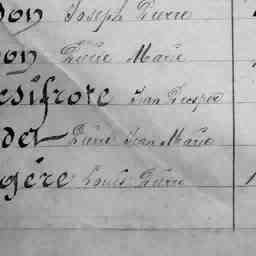 don Joseph Pierre
on Pierre Marie
esifrote Jean Prosper
det Pierre Jean Marie
gère Louis Pierre